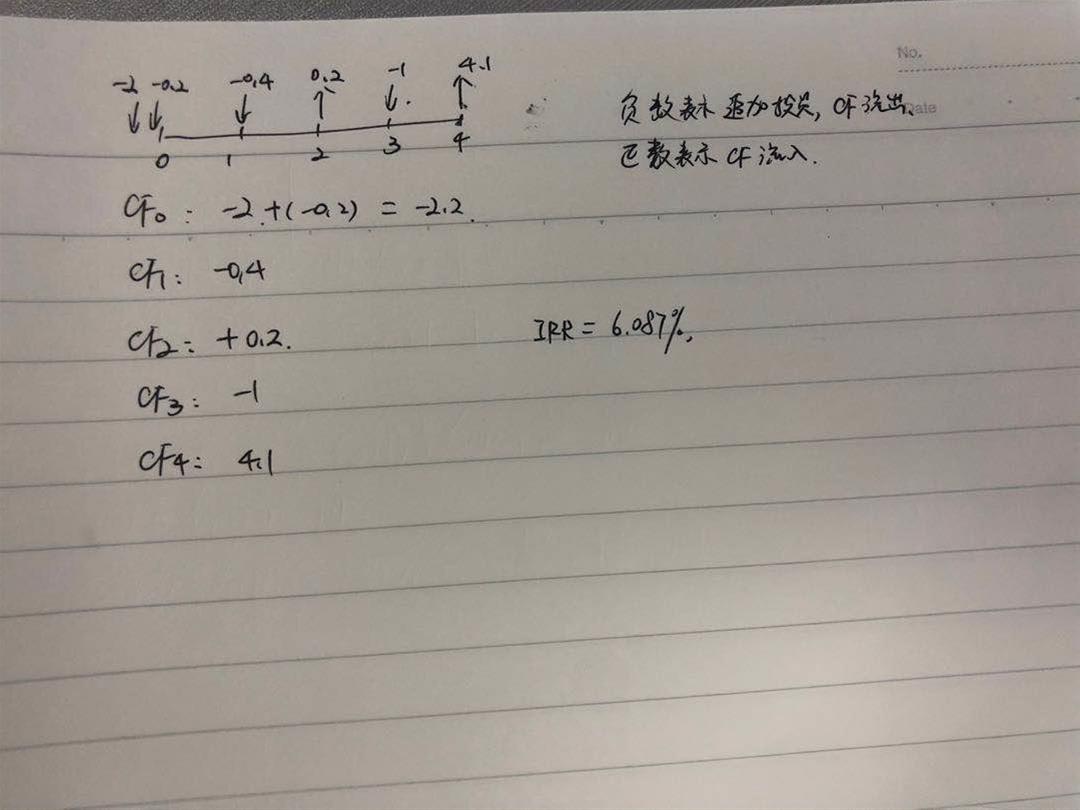 No.
-2 -0.2 -0.4 0.2 -1 4.1
0 1 2 3 4
负数表示追加投资, CF流出.
Date
正数表示 CF 流入.
CF₀: -2 + (-0.2) = -2.2
CF₁: -0.4
CF₂: +0.2.
IRR = 6.087%,
CF₃: -1
CF₄: 4.1